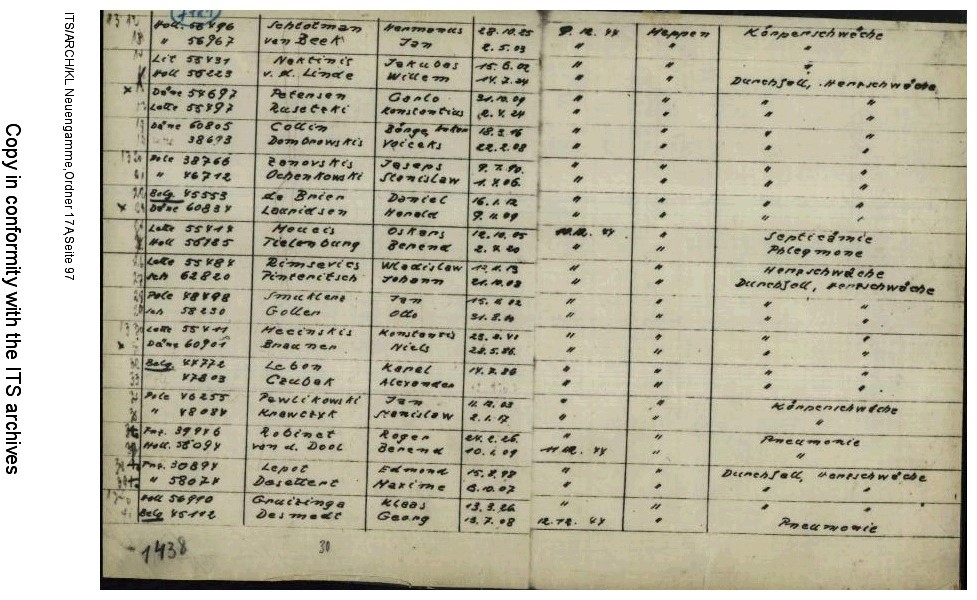 ITS/ARCH/KL Neuengamme, Ordner 17 A Seite 97
Copy in conformity with the ITS archives
Holl. 56496 Schlotman Hermanus 28.10.25 9.12.44 Meppen Körperschwäche
" 56967 van Beek Jan 2.5.03 " " "
Lit 55431 Nektinis Jakubas 15.6.02 " " "
Holl 56223 v. d. Linde Willem 14.7.24 " " Durchfall, Herzschwäche
x Däne 54697 Petersen Carlo 31.10.09 " " " "
Lette 55497 Rusetzki Konstantius 2.4.24 " " " "
Däne 60805 Collin 18.3.16 " " " "
38693 Dombrowskis Voiceks 22.2.08 " " " "
Pole 38766 Zanovskis Jaseps 9.7.90. " " " "
" 46712 Ochenkowski Stanislaw 1.4.06. " " " "
Belg 45553 de Brier Daniel 16.1.12 " " " "
x Däne 60834 Lauridsen Harald 9.11.09 " " " "
Lette 55414 Oskars 12.10.05 10.12.44 " Septicämie
Holl 56185 Tielenburg Berend 2.4.20 " " Phlegmone
Lette 55484 Rimsevics Wladislaw " " Herzschwäche
62820 Pinteritsch Johann 21.10.03 " " Durchfall, Herzschwäche
Pole 48498 Jan 15.11.02 " " " "
58230 Goller Otto 31.3.10 " " " "
Lette 55411 Mecinskis Konstantis " " " "
x Däne 60901 Brauner Niels 28.5.86. " " " "
Belg. 44772 Lebon Karel 14.7.86 " " " "
47803 Czubak Alexander " " " "
Pole 46255 Pawlikowski Jan 11.12.03 " " Körperschwäche
" 48084 Krawczyk Stanislaw 2.1.17. " " "
Frz. 39946 Robinet Roger 24.2.26. " " Pneumonie
Holl. 56094 van d. Dool Berend 10.1.09 11.12.44 " "
Frz. 30894 Lepot Edmond 15.8.98 " " Durchfall, Herzschwäche
" 58074 Desettert Maxime 8.10.07 " " " "
Holl 56910 Gruizinga Klaas 13.9.26 " " " "
Belg 45112 Desmedt Georg 13.7.08 12.12.44 " Pneumonie
1438 30